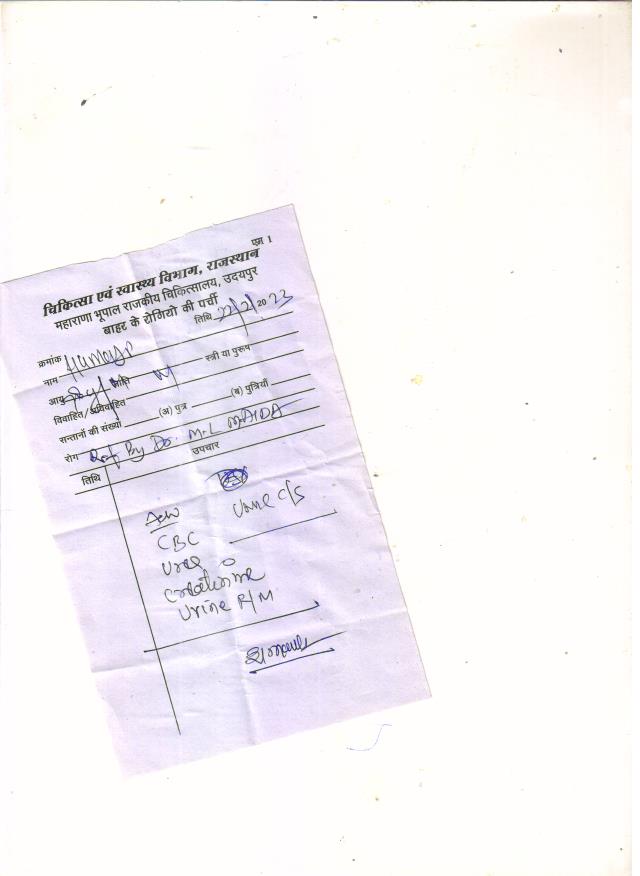 एम 1
चिकित्सा एवं स्वास्थ्य विभाग, राजस्थान
महाराणा भूपाल राजकीय चिकित्सालय, उदयपुर
बाहर के रोगियो की पर्ची
क्रमांक तिथि 22/2/2023
नाम
आयु जाति M स्त्री या पुरूष
विवाहित/अविवाहित
सन्तानों की संख्यां (अ) पुत्र (ब) पुत्रियाँ
रोग Ref By Dr. M.L
तिथि उपचार
Adv Urine C/S
CBC
Urea
Creatinine
Urine R/M